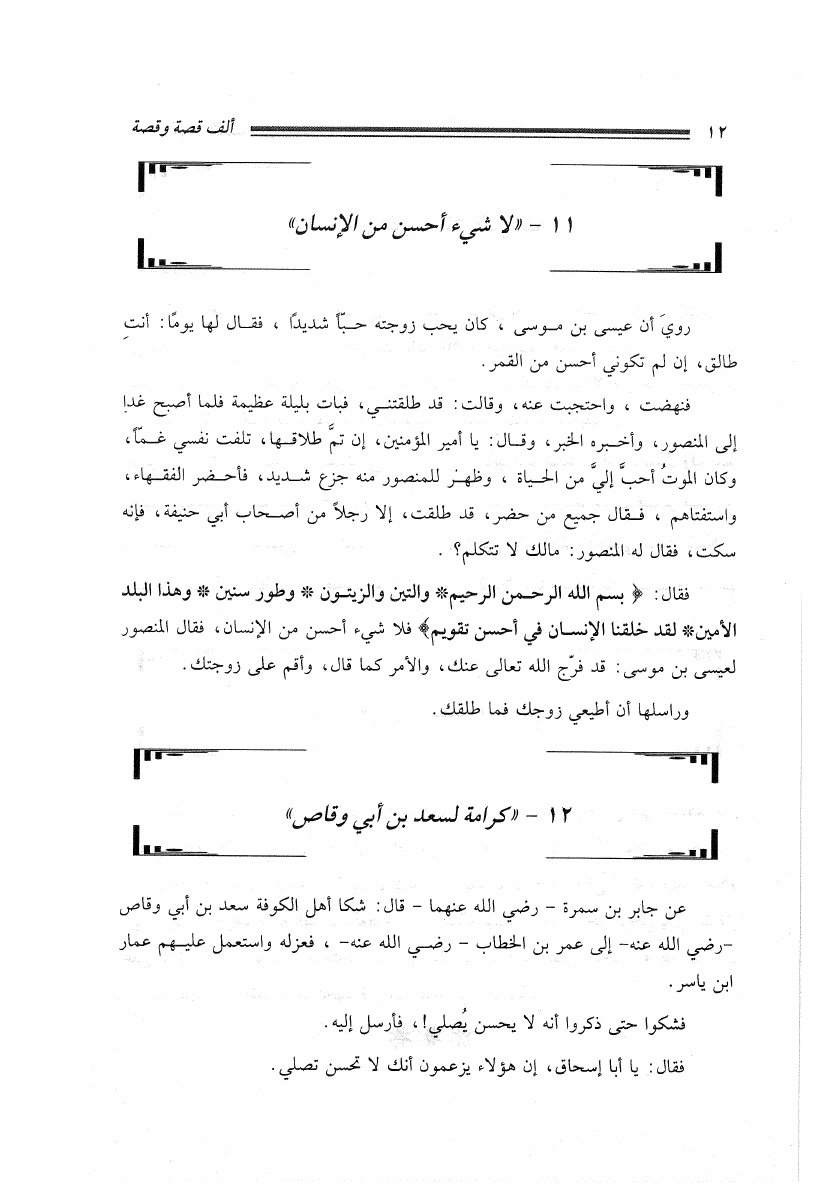 ١٢ ألف قصة وقصة
١١ - «لا شيء أحسن من الإنسان»
رويَ أن عيسى بن موسى ، كان يحب زوجته حبّاً شديدًا ، فقال لها يومًا: أنتِ
طالق، إن لم تكوني أحسن من القمر.
فنهضت ، واحتجبت عنه، وقالت: قد طلقتني، فبات بليلة عظيمة فلما أصبح غدا
إلى المنصور، وأخبره الخبر، وقال: يا أمير المؤمنين، إن تمَّ طلاقها، تلفت نفسي غمّاً،
وكان الموتُ أحبَّ إليَّ من الحياة ، وظهر للمنصور منه جزع شديد، فأحضر الفقهاء،
واستفتاهم ، فقال جميع من حضر، قد طلقت، إلا رجلاً من أصحاب أبي حنيفة، فإنه
سكت، فقال له المنصور: مالك لا تتكلم؟ .
فقال: ﴿ بسم الله الرحمن الرحيم* والتين والزيتون * وطور سنين * وهذا البلد
الأمين* لقد خلقنا الإنسان في أحسن تقويم﴾ فلا شيء أحسن من الإنسان، فقال المنصور
لعيسى بن موسى: قد فرّج الله تعالى عنك، والأمر كما قال، وأقم على زوجتك.
وراسلها أن أطيعي زوجك فما طلقك.
١٢ - «كرامة لسعد بن أبي وقاص»
عن جابر بن سمرة - رضي الله عنهما - قال: شكا أهل الكوفة سعد بن أبي وقاص
-رضي الله عنه- إلى عمر بن الخطاب - رضي الله عنه- ، فعزله واستعمل عليهم عمار
ابن ياسر.
فشكوا حتى ذكروا أنه لا يحسن يُصلي!، فأرسل إليه.
فقال: يا أبا إسحاق، إن هؤلاء يزعمون أنك لا تحسن تصلي.